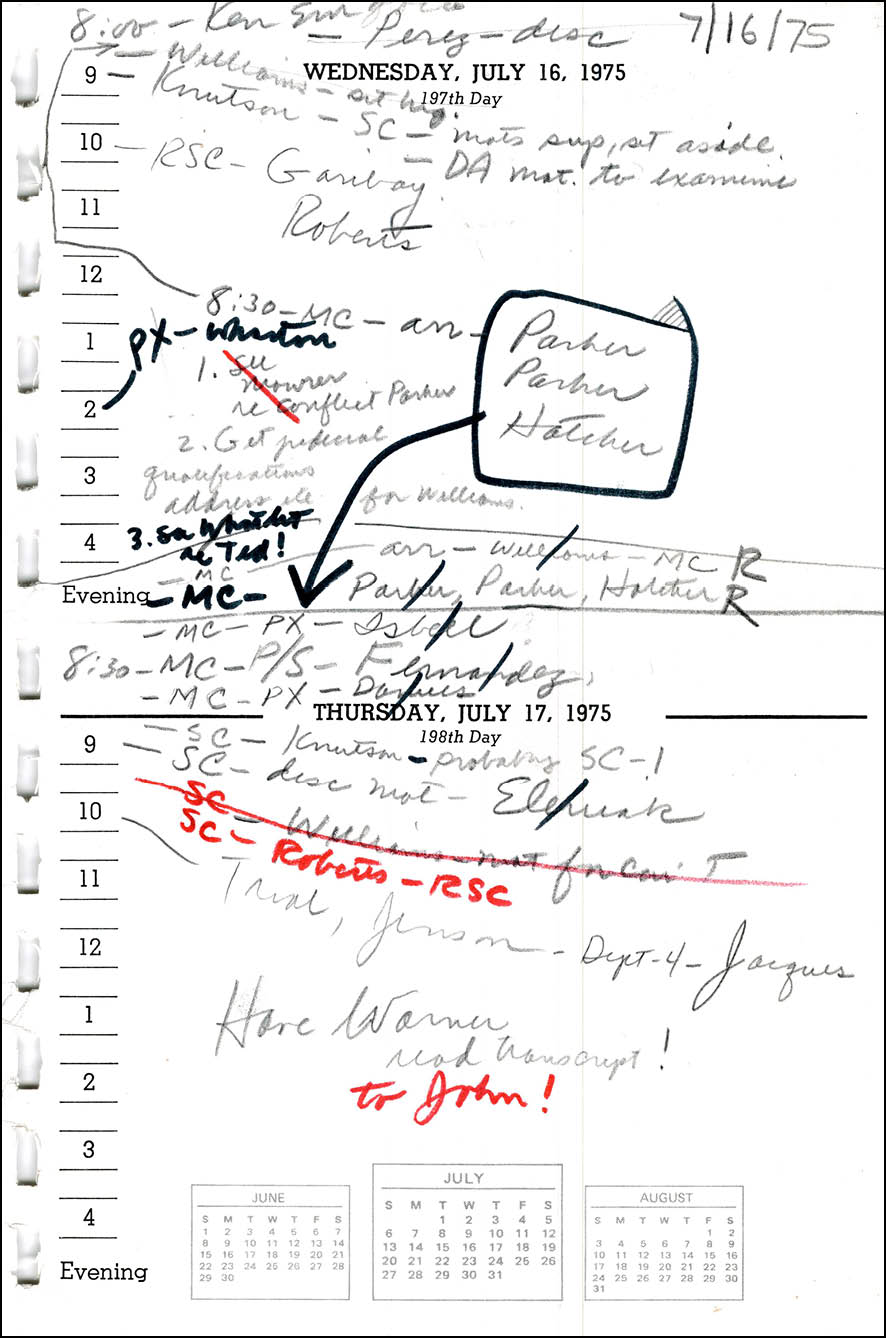 8:00 - Ken
- Perez - disc 7/16/75
- Williams - set hrg.
WEDNESDAY, JULY 16, 1975
197th Day
9 - Knutson - SC - mots sup, set aside.
- DA mot. to examine
10 - RSC - Garibay
11 Roberts
12
8:30 - MC - arr -
Parker
Parker
Hatcher
1 PX - Whaton
1. See
mowrer
re conflict Parker
2
2. Get judicial
3 qualifications
address etc for Williams.
3. See
re Ted!
4 arr - Williams - MC R
- MC
Evening - MC - Parker, Parker, Hatcher R
- MC - PX - Isbell
8:30 - MC - P/S - Fernandez,
- MC - PX - Daniels
THURSDAY, JULY 17, 1975
198th Day
9 - SC - Knutson - probably SC-1
SC - disc mot -
SC - Williams - mot for con't
10 SC - Roberts - RSC
11 Trial, Jenson - Dept-4 - Jacques
12
1 Have Warner
read transcript!
2 to John!
3
4
Evening
JUNE
S M T W T F S
1 2 3 4 5 6 7
8 9 10 11 12 13 14
15 16 17 18 19 20 21
22 23 24 25 26 27 28
29 30
JULY
S M T W T F S
1 2 3 4 5
6 7 8 9 10 11 12
13 14 15 16 17 18 19
20 21 22 23 24 25 26
27 28 29 30 31
AUGUST
S M T W T F S
1 2
3 4 5 6 7 8 9
10 11 12 13 14 15 16
17 18 19 20 21 22 23
24 25 26 27 28 29 30
31